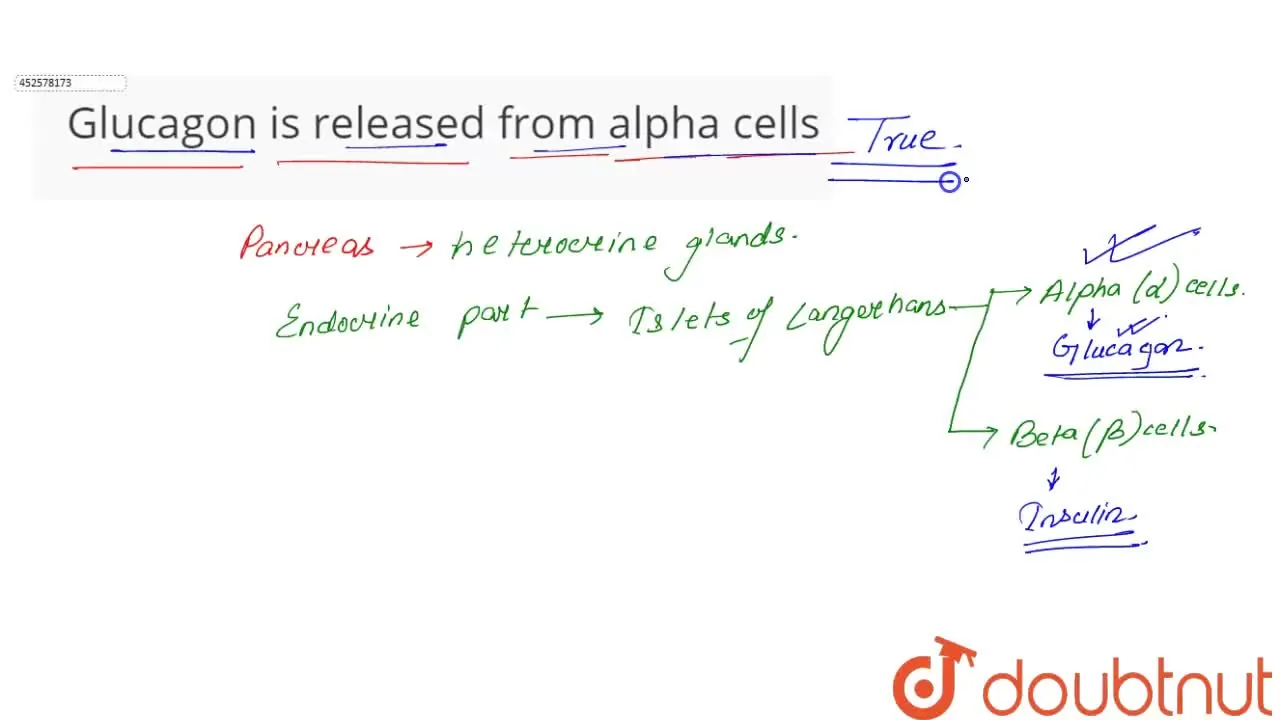 452578173
Glucagon is released from alpha cells True.
Pancreas → heterocrine glands.
Endocrine part → Islets of Langerhans
Alpha (α) cells.
↓
Glucagon.
Beta (β) cells.
↓
Insulin.
doubtnut